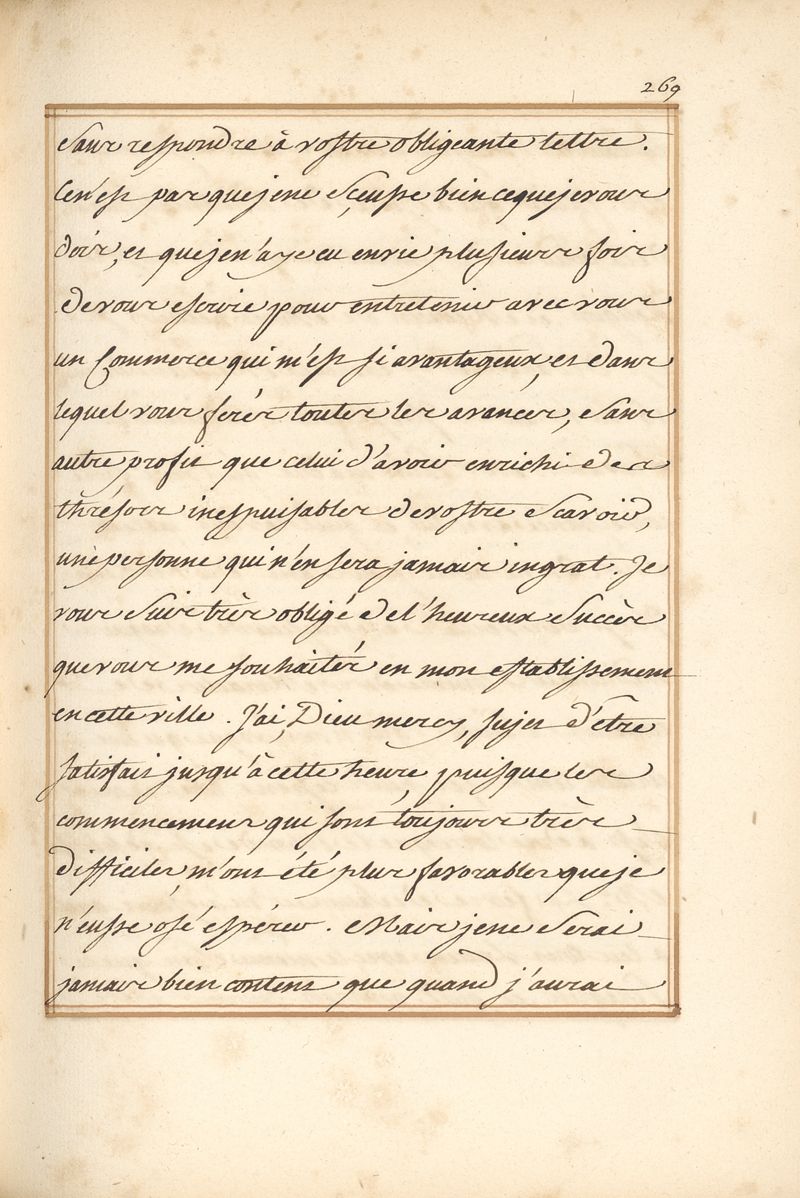 269
sans respondre à vostre obligeante lettre.
Ce n'est pas que je ne sçeusse bien ce que je vous
dois, et que je n'aye eu envie plusieurs fois
de vous escrire pour entretenir avec vous
un Commerce qui m'est si avantageux et dans
lequel vous ferés toutes les avances, sans
autre profit que celui d'avoir enrichi des
thrésors inespuisables de vostre scavoir,
une personne qui n'en sera jamais ingrat. Je
vous suis très obligé de l'heureux succès
que vous me souhaités en mon establissement
en cette ville. J'ai, Dieu mercy, sujet d'être
satisfait jusqu'à cette heure, puisque les
commencemens qui sont toujours très
difficiles, m'ont été plus favorables que je
n'eusse osé espérer. Mais je ne serai
jamais bien content que quand j'aurai